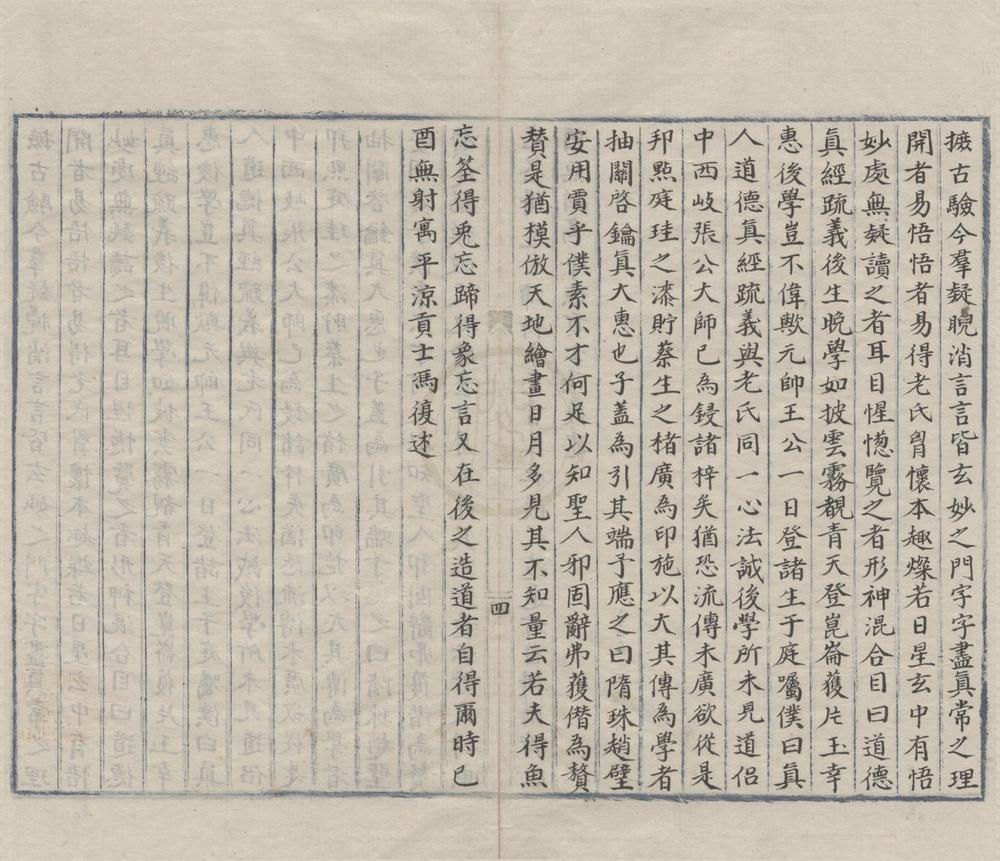 摭古驗今羣疑睨消言言皆玄妙之門字字盡眞常之理
開者易悟悟者易得老氏胷懷本趣燦若日星玄中有悟
妙處無疑讀之者耳目惺愡覽之者形神混合目曰道德
眞經疏義後生晚學如披雲霧覩青天登崑崙獲片玉幸
惠後學豈不偉歟元帥王公一日登諸生于庭囑僕曰眞
人道德眞經疏義與老氏同一心法誠後學所未見道侣
中西岐張公大師已為鋟諸梓矣猶恐流傳未廣欲從是
邦㸃庭珪之漆貯蔡生之楮廣為印施以大其傳為學者
抽關啓鑰眞大惠也子蓋為引其端予應之曰隋珠趙璧
安用賈乎僕素不才何足以知聖人邪固辭弗獲僭為贅
賛是猶模倣天地繪畫日月多見其不知量云若夫得魚
四
忘筌得兎忘蹄得象忘言又在後之造道者自得爾時已
酉無射寓平涼貢士馮復述